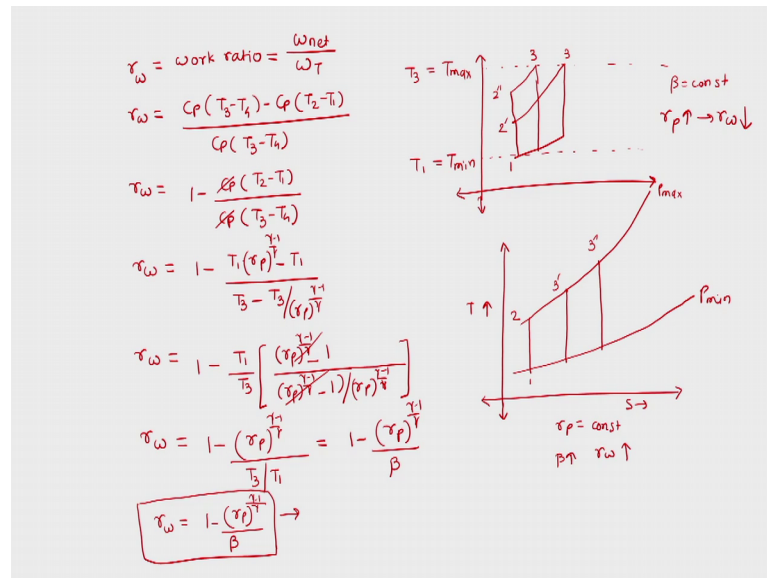 r_ω = work ratio = ω_net / ω_T
r_ω = Cp(T₃-T₄) - Cp(T₂-T₁) / Cp(T₃-T₄)
r_ω = 1 - Cp(T₂-T₁) / Cp(T₃-T₄)
r_ω = 1 - T₁(r_p)^(γ-1/γ) - T₁ / T₃ - T₃/(r_p)^(γ-1/γ)
r_ω = 1 - T₁/T₃ [ (r_p)^(γ-1/γ) - 1 / ((r_p)^(γ-1/γ) - 1)/(r_p)^(γ-1/γ) ]
r_ω = 1 - (r_p)^(γ-1/γ) / T₃/T₁ = 1 - (r_p)^(γ-1/γ) / β
r_ω = 1 - (r_p)^(γ-1/γ) / β →
T₃ = Tmax
3 3
2"
2'
T₁ = Tmin
1
β = const
r_p↑ → r_ω↓
Pmax
3"
3'
T ↑
2
Pmin
1
S→
r_p = const
β↑ r_ω ↑